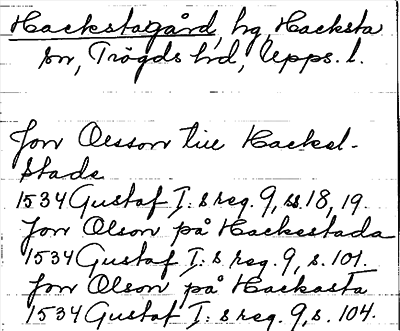 Hackstagård, hg, Hacksta
sn, Trögds hd, Upps. l.
Jon Olsson till Hackel-
stade
1534 Gustaf I:s reg. 9, ss. 18, 19.
Jon Olson på Hackestada
1534 Gustaf I:s reg. 9, s. 101.
Jon Olson på Hackasta
1534 Gustaf I:s reg. 9, s. 104.